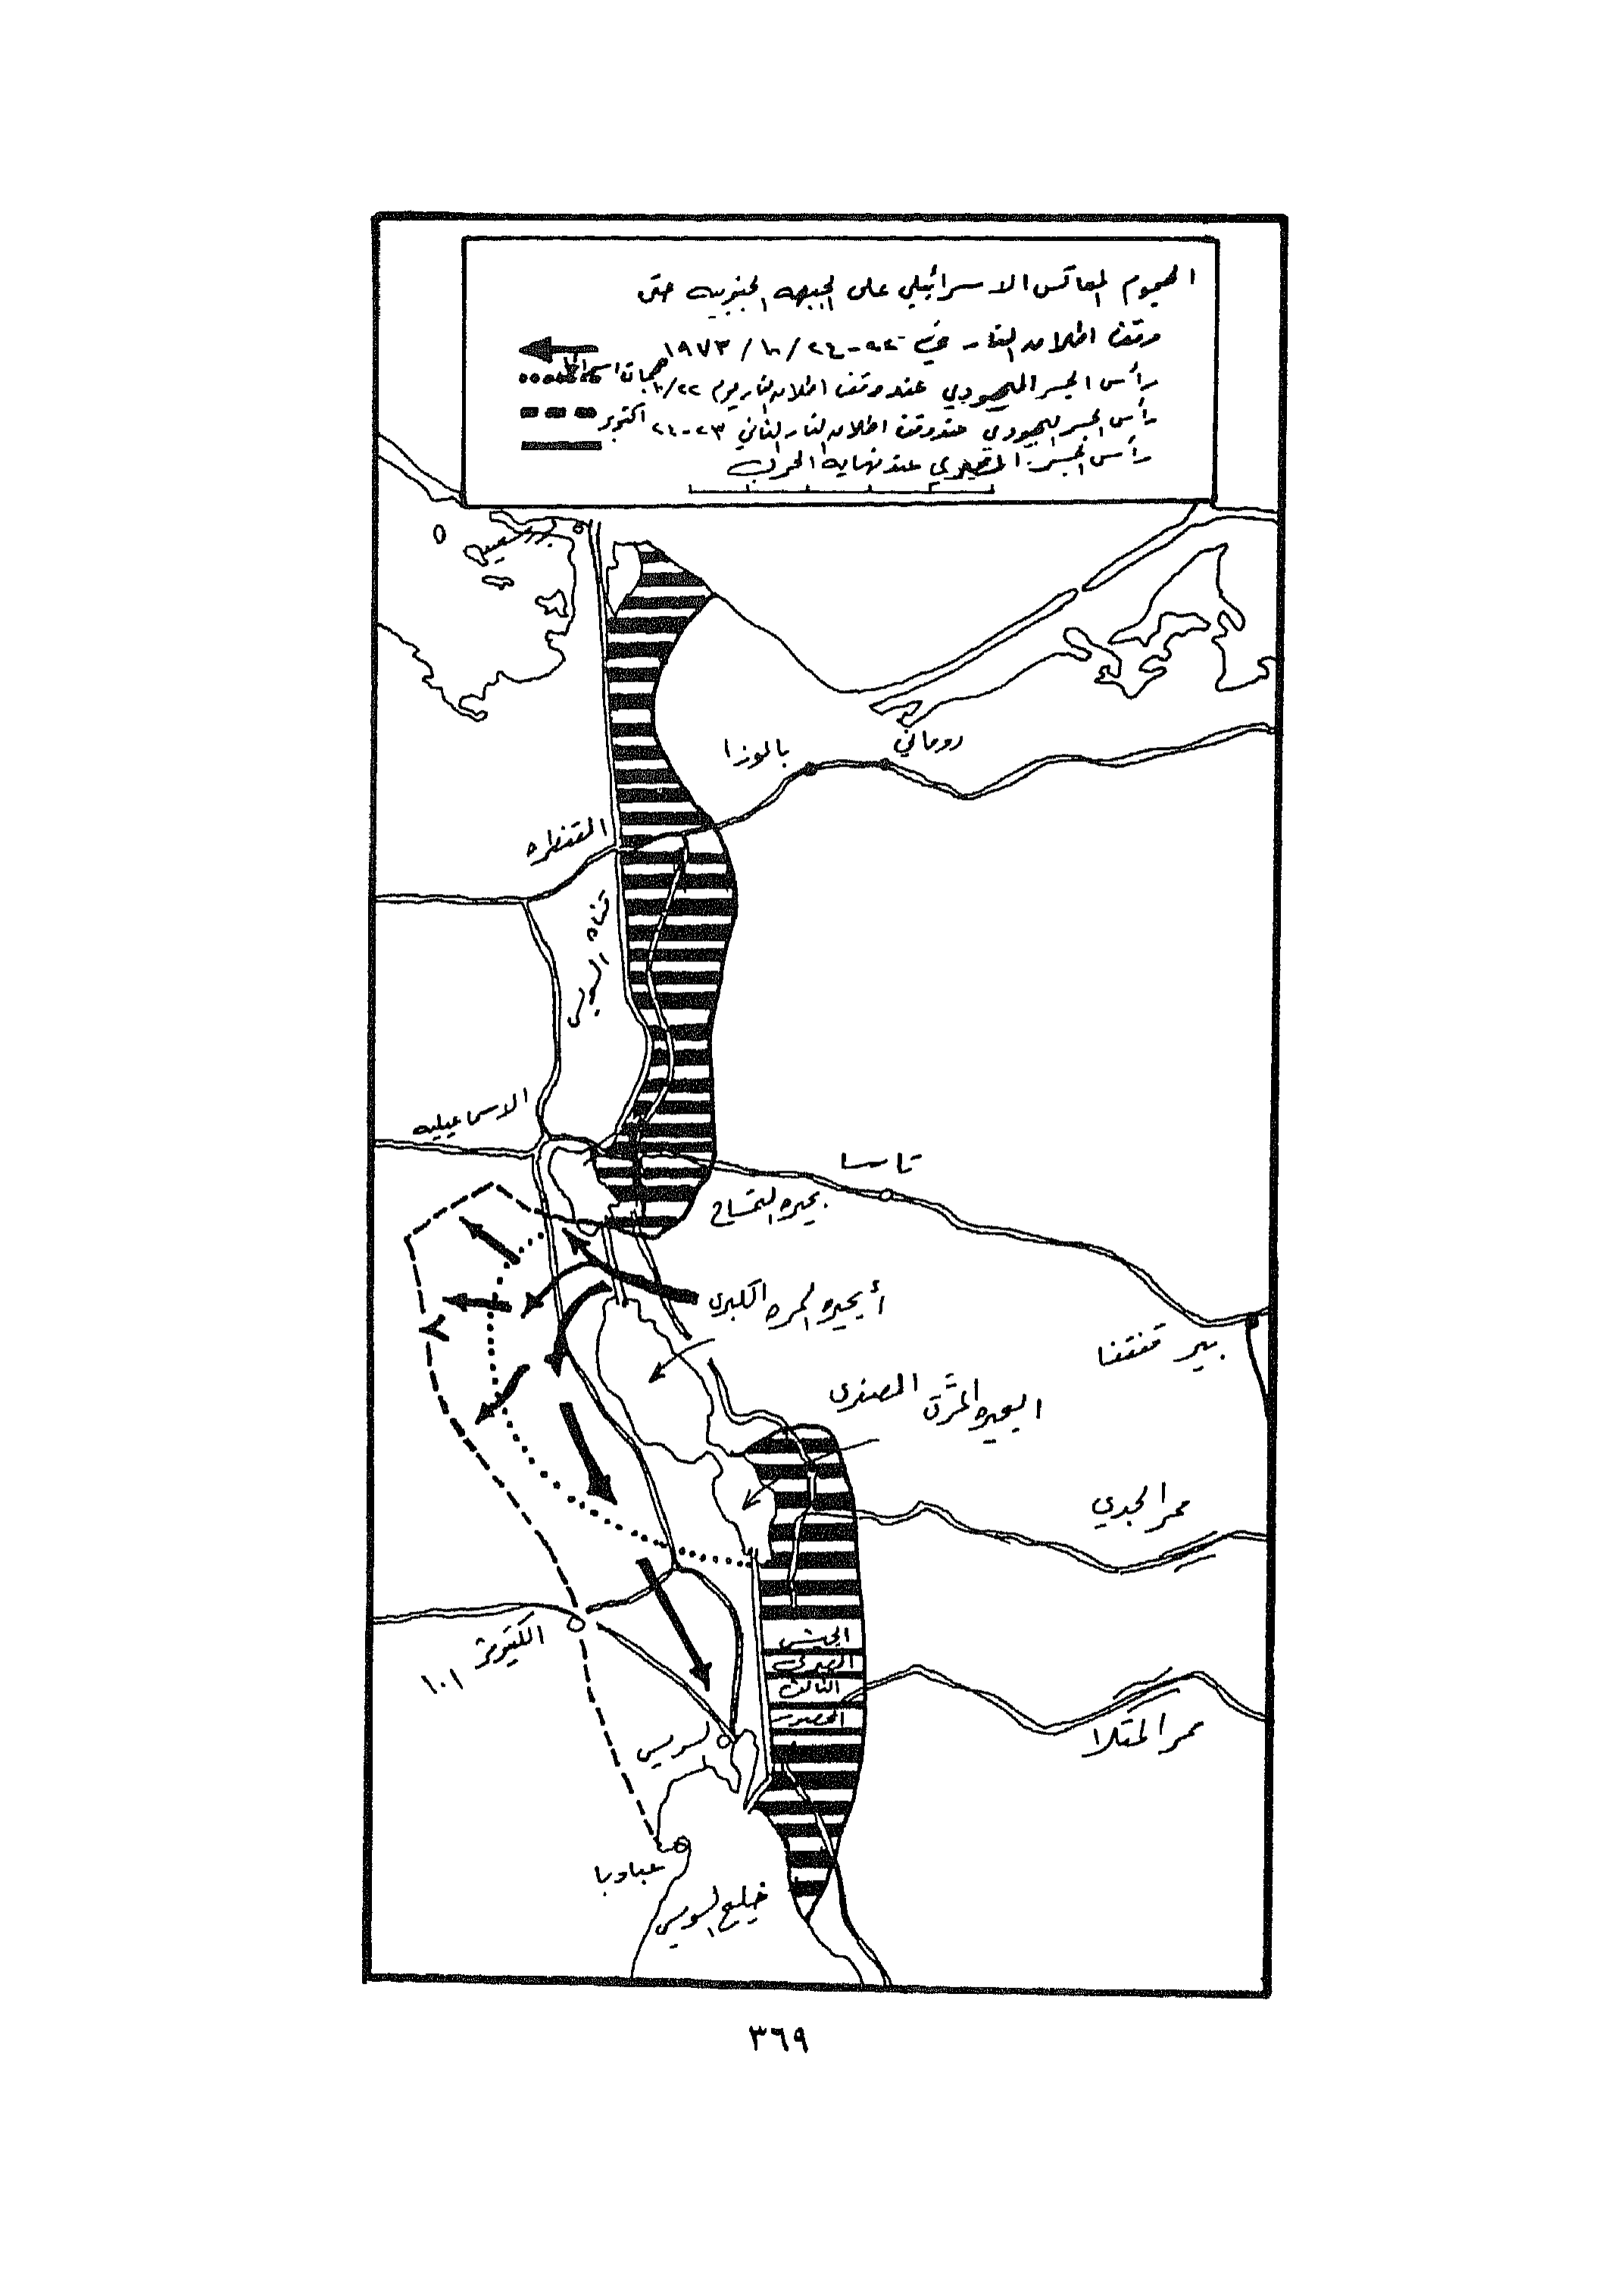 الهجوم المعاكس الاسرائيلي على الجبهه الجنوبيه حتى
وقف اطلاق النار في ٢٤ /١٠ / ١٩٧٣
هجمات اسرائيل
رأس الجسر اليهودي عند وقف اطلاق النار يوم ١٠/٢٢
رأس الجسر اليهودي عند وقف اطلاق النار الثاني ٢٣-٢٤ اكتوبر
رأس الجسر المصري عند نهاية الحرب
بورسعيد
بالموزا
روماني
القنطره
قناه السويس
الاسماعيليه
تاسا
بحيره التمساح
البحيره المره الكبرى
بير
البحيره المره الصغرى
ممر الجدي
الجيش
المصرى
الثالث
المحصور
الكيلومتر
١٠١
ممر المتلا
السويس
عبادبا
خليج السويس
٣٦٩